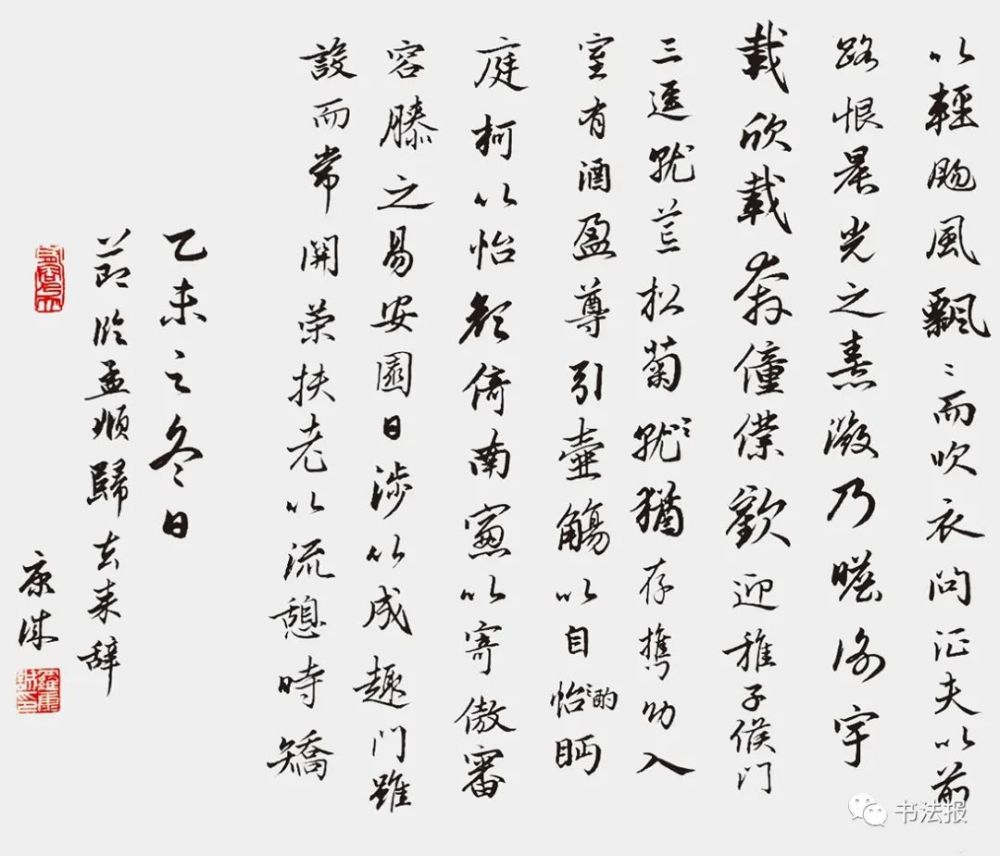 以輕颺風飄〻而吹衣問征夫以前
路恨晨光之熹微乃瞻衡宇
載欣載奔僮僕歡迎稚子候門
三逕就荒松菊就〻猶存攜幼入
室有酒盈尊引壺觴以自怡酌眄
庭柯以怡顏倚南窗以寄傲審
容膝之易安園日涉以成趣門雖
設而常關策扶老以流憩時矯
乙未之冬日
節臨孟頫歸去来辞
康
书法报